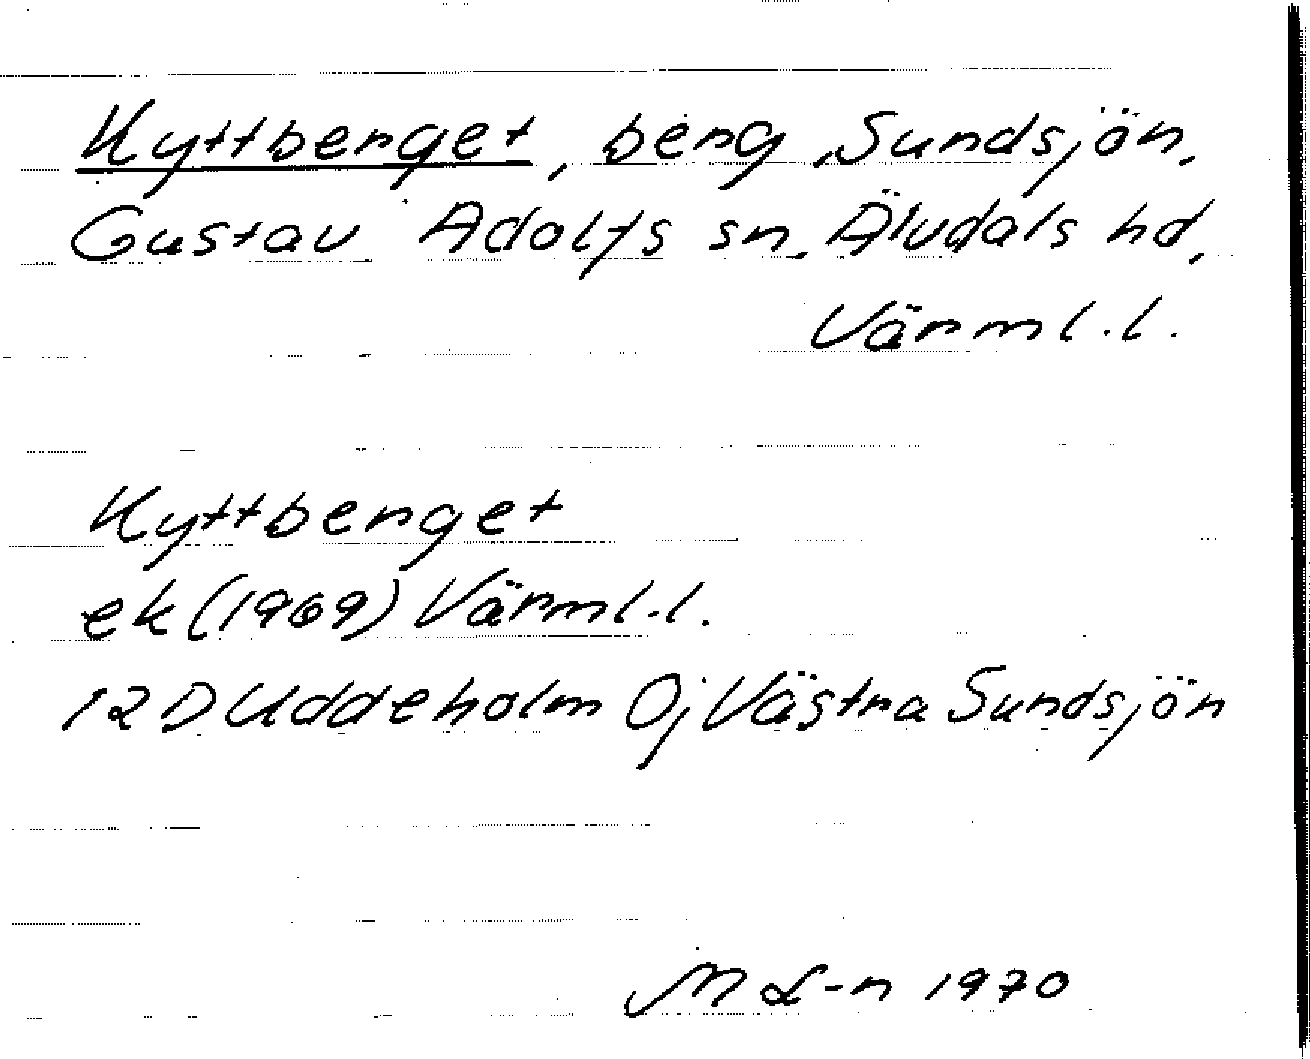 Kyttberget, berg, Sundsjön,
Gustav Adolfs sn, Älvdals hd,
Värml.l.
Kyttberget
ek (1969) Värml.l.
12 D Uddeholm Oj Västra Sundsjön
M L-n 1970